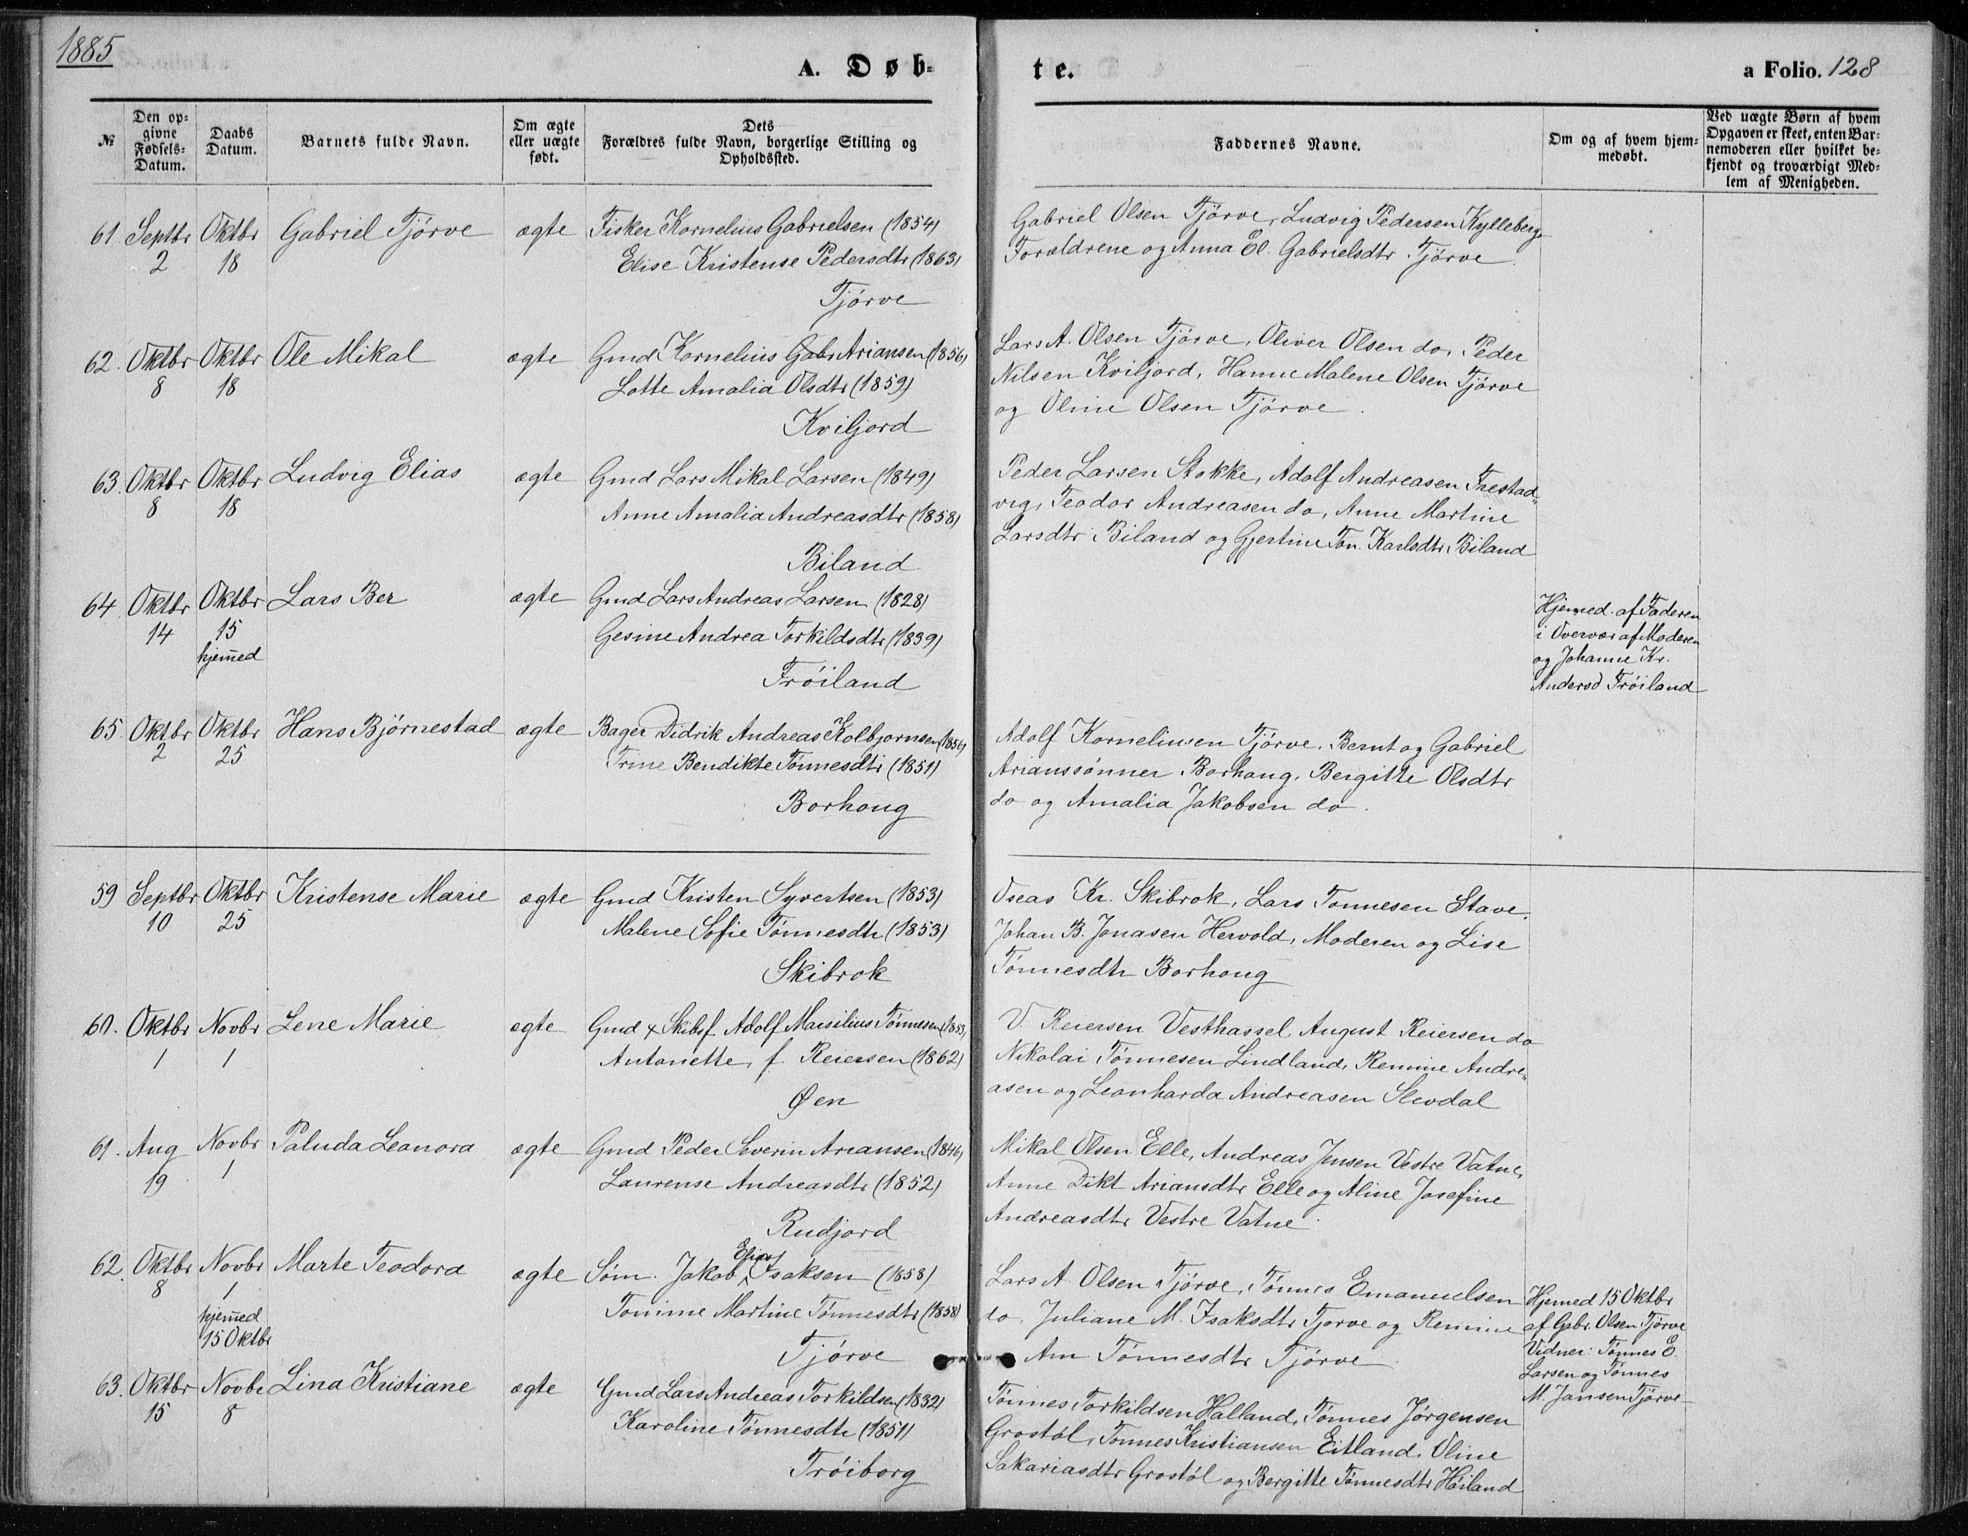 1885
A. Døb-
te.
a Folio. 128
№
Den op-
givne
Fødsels-
Datum.
Daabs
Datum.
Barnets fulde Navn.
Om ægte
eller uægte
født.
Dets
Forældres fulde Navn, borgerlige Stilling og
Opholdssted.
Faddernes Navne.
Om og af hvem hjem-
medøbt.
Ved uægte Børn af hvem
Opgaven er skeet, enten Bar-
nemoderen eller hvilket be-
kjendt og troværdigt Med-
lem af Menigheden.
61 Septbr Oktbr Gabriel Tjørve ægte Fisker Kornelius Gabrielsen (1854)
2 18 Elise Kristense Pedersdtr (1863)
Tjørve
Gabriel Olsen Tjørve, Ludvig Pedersen Kylleberg,
Forældrene og Anna El. Gabrielsdtr Tjørve
62. Oktbr Oktbr Ole Mikal ægte Gmd Kornelius Gabr Ariansen (1856)
8 18 Lotte Amalia Olsdtr (1859)
Kviljord
Lars A. Olsen Tjørve, Oliver Olsen do, Peder
Nilsen Kviljord, Hanne Malene Olsen Tjørve
og Oline Olsen Tjørve.
63. Oktbr Oktbr Ludvig Elias ægte Gmd Lars Mikal Larsen (1849)
8 18 Anne Amalia Andreasdtr (1858)
Biland
Peder Larsen Stokke, Adolf Andreasen Frestad-
vig, Teodor Andreasen do, Anne Martine
Larsdtr Biland og Gjertine Ton. Karlsdtr Biland
64 Oktbr Oktbr Lars Ber ægte Gmd Lars Andreas Larsen (1828)
14 15 Gesine Andrea Torkildsdtr (1839)
hjemmed
Trøiland
Hjemmed. af Faderen
i Overvær af Moderen
og Johanne Kr.
Andersd Trøiland
65 Oktbr Oktbr Hans Bjørnestad ægte Bager Didrik Andreas Kolbjornsen (1856)
2 25 Trine Bendikte Tønnesdtr (1851)
Borhoug
Adolf Korneliusen Tjørve, Bernt og Gabriel
Arianssønner Borhaug, Bergitte Olsdtr
do og Amalia Jakobsen do.
59 Septbr Oktbr Kristense Marie ægte Gmd Kristen Syvertsen (1853)
10 25 Malene Sofie Tønnesdtr (1853)
Skibrok
Oseas Kr. Skibrok, Lars Tønnesen Stave,
Johan B. Jonasen Hervold, Moderen og Lise
Tønnesdtr Borhoug
60. Oktbr Novbr Lene Marie ægte Gmd & Skibsf. Adolf Marsilius Tønnesen (1853)
1 1 Antonette, f. Reiersen (1862)
Øen
V. Reiersen Vesthassel, August Reiersen do
Nikolai Tønnesen Lindland, Remine Andre-
asen og Leonharda Andreasen Slevdal
61. Aug Novbr Paluda Leonora ægte Gmd Peder Severin Ariansen (1846)
19 1 Laurense Andreasdtr (1852)
Rudjord
Mikal Olsen Elle, Andreas Jensen Vestre Vatne,
Anne Dikt Ariansdtr Elle og Aline Josefine
Andreasdtr Vestre Vatne.
62. Oktbr Novbr Marte Teodora ægte Søm. Jakob Elias Isaksen (1858)
8 1 Tomine Martine Tønnesdtr (1858)
hjemmed
15 Oktbr
Tjørve
Lars A. Olsen Tjørve, Tønnes Emanuelsen
do, Juliane M. Isaksdtr Tjørve og Remine
Am Tønnesdtr Tjørve.
Hjemmed 15 Oktbr
af Gabr. Olsen Tjørve
Vidner: Tønnes E.
Larsen og Tønnes
M. Jansen Tjørve
63. Oktbr Novbr Lina Kristiane ægte Gmd Lars Andreas Torkildsen (1832)
15 8 Karoline Tønnesdtr (1851)
Trøiborg
Tønnes Torkildsen Halland, Tønnes Jørgensen
Grostøl, Tønnes Kristiansen Eitland, Oline
Sakariasdtr Grostøl og Bergitte Tønnesdtr Høiland